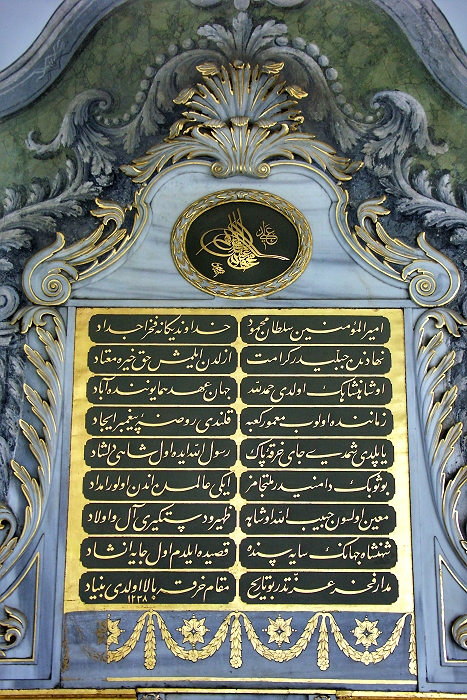 امير المؤمنين سلطان محمود خداونديكانه فخر اجداد
نهادندن جبليدر كرامت ازلدن ايلمش حق خيره معتاد
اوشاهنشاهك اولدى حمد لله جهان عهد همايوننده آباد
زماننده اولوب معمور كعبه قلندى روضۀ پيغمبر ايجاد
ياپلدى شمدى جاى خرقۀ پاك رسول الله ايده اول شاهى دلشاد
بو ثوبك دامنيدر ملتجامز ايكى عالمده اندن اولور امداد
معين اولسون حبيب الله او شاهه ظهير و دستكيرى آل و اولاد
شهنشاه جهانك سايه سنده قصيده ايلدم اول جايه انشاد
مدار فخر عزتدر بو تاريخ مقام خرقه بالا اولدى بنياد
١٢٣٨